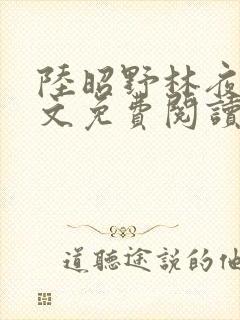 陸昭野林夜
文免費閱讀
道聽途說的他